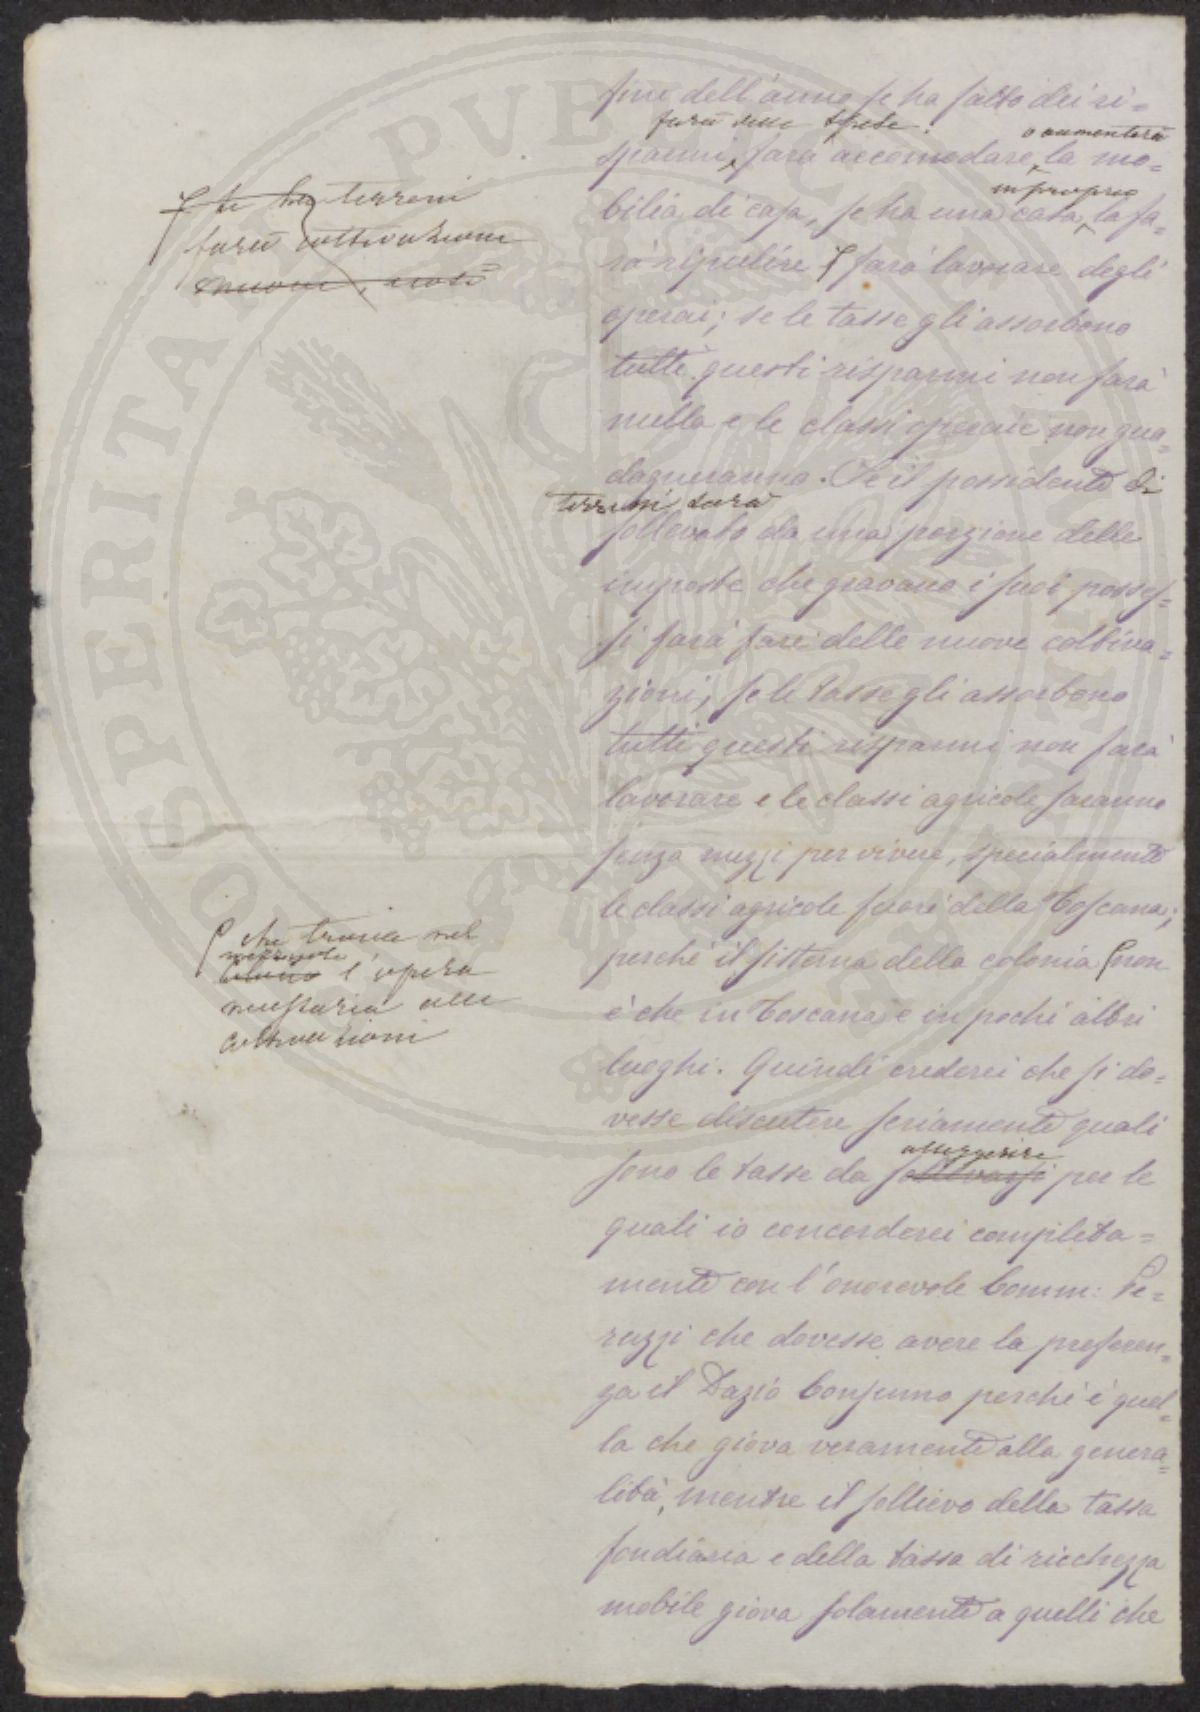 fine dell'anno se ha fatto dei ri=
farà delle spese.
o aumenterà
sparmi, farà accomodare la mo=
in proprio
bilia di casa, se ha una casa, la fa=
rà ripulire farà lavorare degli
operai; se le tasse gli assorbono
tutti questi risparmi non farà
nulla e le classi operaie non gua=
dagneranno. Se il possidente di
terreni sarà
sollevato da una porzione delle
imposte che gravano i suoi posses=
si farà fare delle nuove coltiva=
zioni, se le tasse gli assorbono
tutti questi risparmi non farà
lavorare e le classi agricole saranno
senza mezzi per vivere, specialmente
le classi agricole fuori della Toscana;
perchè il sistema della colonia non
è che in Toscana e in pochi altri
luoghi. Quindi crederei che si do=
vesse discutere seriamente quali
alleggerire
sono le tasse da sollevarsi per le
quali io concorderei completa=
mente con l'onorevole Comm: Pe=
ruzzi che dovesse avere la preferen=
za il Dazio Consumo perchè è quel=
la che giova veramente alla genera=
lità, mentre il sollievo della tassa
fondiaria e della tassa di ricchezza
mobile giova solamente a quelli che
se ha terreni
farà coltivazione
nuove,
che trova nel
l'opera
necessaria alle
coltivazioni
PROSPERITA PVBLICAE